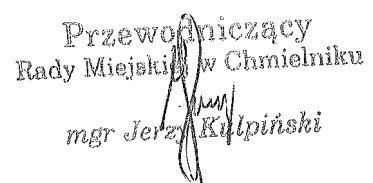 Przewodniczący
Rady Miejskiej w Chmielniku
mgr Jerzy Kulpiński